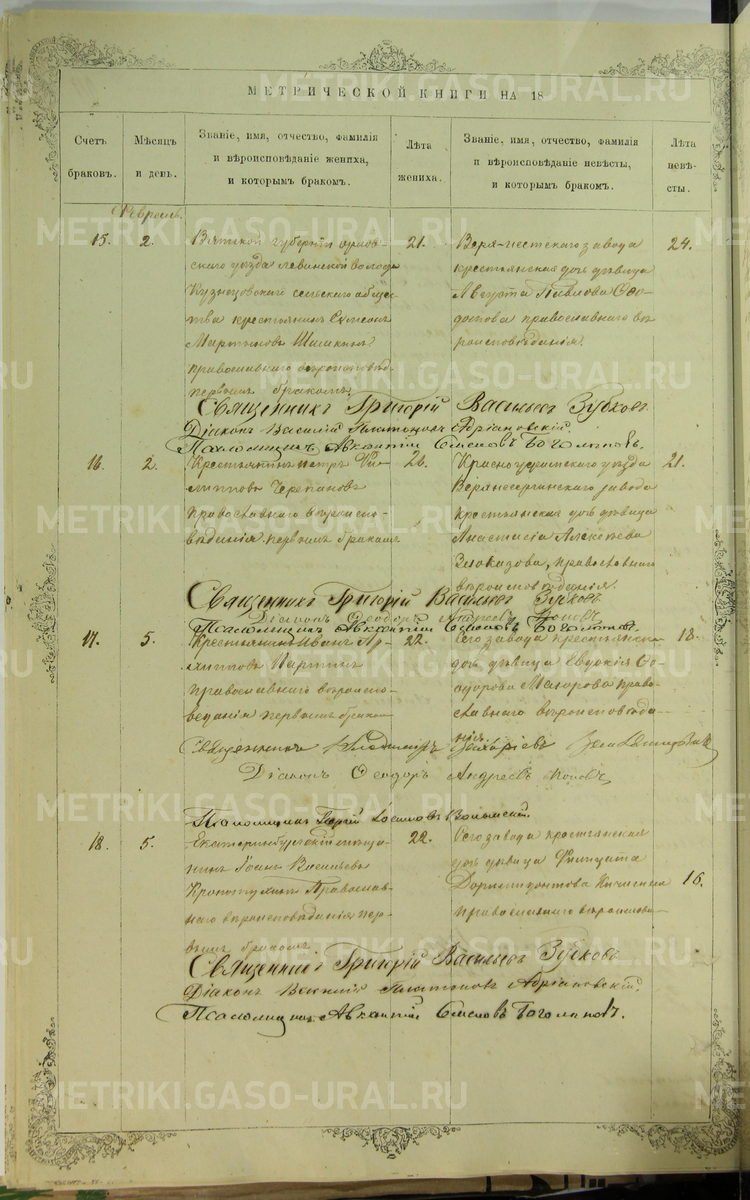 МЕТРИЧЕСКОЙ КНИГИ НА 18
Счетъ браковъ.
Мѣсяцъ и день.
Званіе, имя, отчество, фамилія и вѣроисповѣданіе жениха, и которымъ бракомъ.
Лѣта жениха.
Званіе, имя, отчество, фамилія и вѣроисповѣданіе невѣсты, и которымъ бракомъ.
Лѣта невѣсты.
Февраль.
15.
2.
Вятской губерніи
скаго уѣзда волости
Кузнецовскаго сельскаго общес-
тва крестьянинъ Симеонъ
Мартыновъ Шишкинъ
православнаго вѣроисповѣд.
первымъ бракомъ
21.
Верх-Исетскаго завода
крестьянская дочь дѣвица
Августа Павлова Ѳео-
православнаго вѣ-
роисповѣданія.
24.
Священникъ Григорій Васильевъ Зубковъ
Діаконъ Василій Платоновъ Адріановскій.
Псаломщикъ Авксентій Семеновъ Боголѣповъ.
16.
2.
Крестьянинъ Петръ Фи-
липповъ Черепановъ
православнаго вѣроиспо-
вѣданія первымъ бракомъ
26.
Красноуфимскаго уѣзда
Верхнесергинскаго завода
крестьянская дочь дѣвица
Анастасія Алексѣева
Злоказова, православнаго
вѣроисповѣданія.
21.
Священникъ Григорій Васильевъ Зубковъ
Діаконъ Ѳеодоръ Андреевъ Поповъ
Псаломщикъ Авксентій Семеновъ Боголѣповъ
17.
5.
Крестьянинъ Иванъ Ар-
хиповъ
православнаго вѣроиспо-
веданія первымъ бракомъ
22.
Сего завода крестьянская
дочь дѣвица Евдокія Ѳе-
одорова Мазорова право-
славнаго вѣроисповѣда-
нія.
18.
Священникъ Владимиръ Захаріевъ
Діаконъ Ѳеодоръ Андреевъ Поповъ
Псаломщикъ Георгій Іосифовъ
18.
5.
Екатеринбургскій мѣща-
нинъ Іоаннъ Васильевъ
Православ-
наго вѣроисповѣданія пер-
вымъ бракомъ
22.
Сего завода крестьянская
дочь дѣвица
Дормидонтова
православнаго вѣроиспов-
16.
Священникъ Григорій Васильевъ Зубковъ
Діаконъ Василій Платоновъ Адріановскій.
Псаломщикъ Авксентій Семеновъ Боголѣповъ.
METRIKI.GASO-URAL.RU